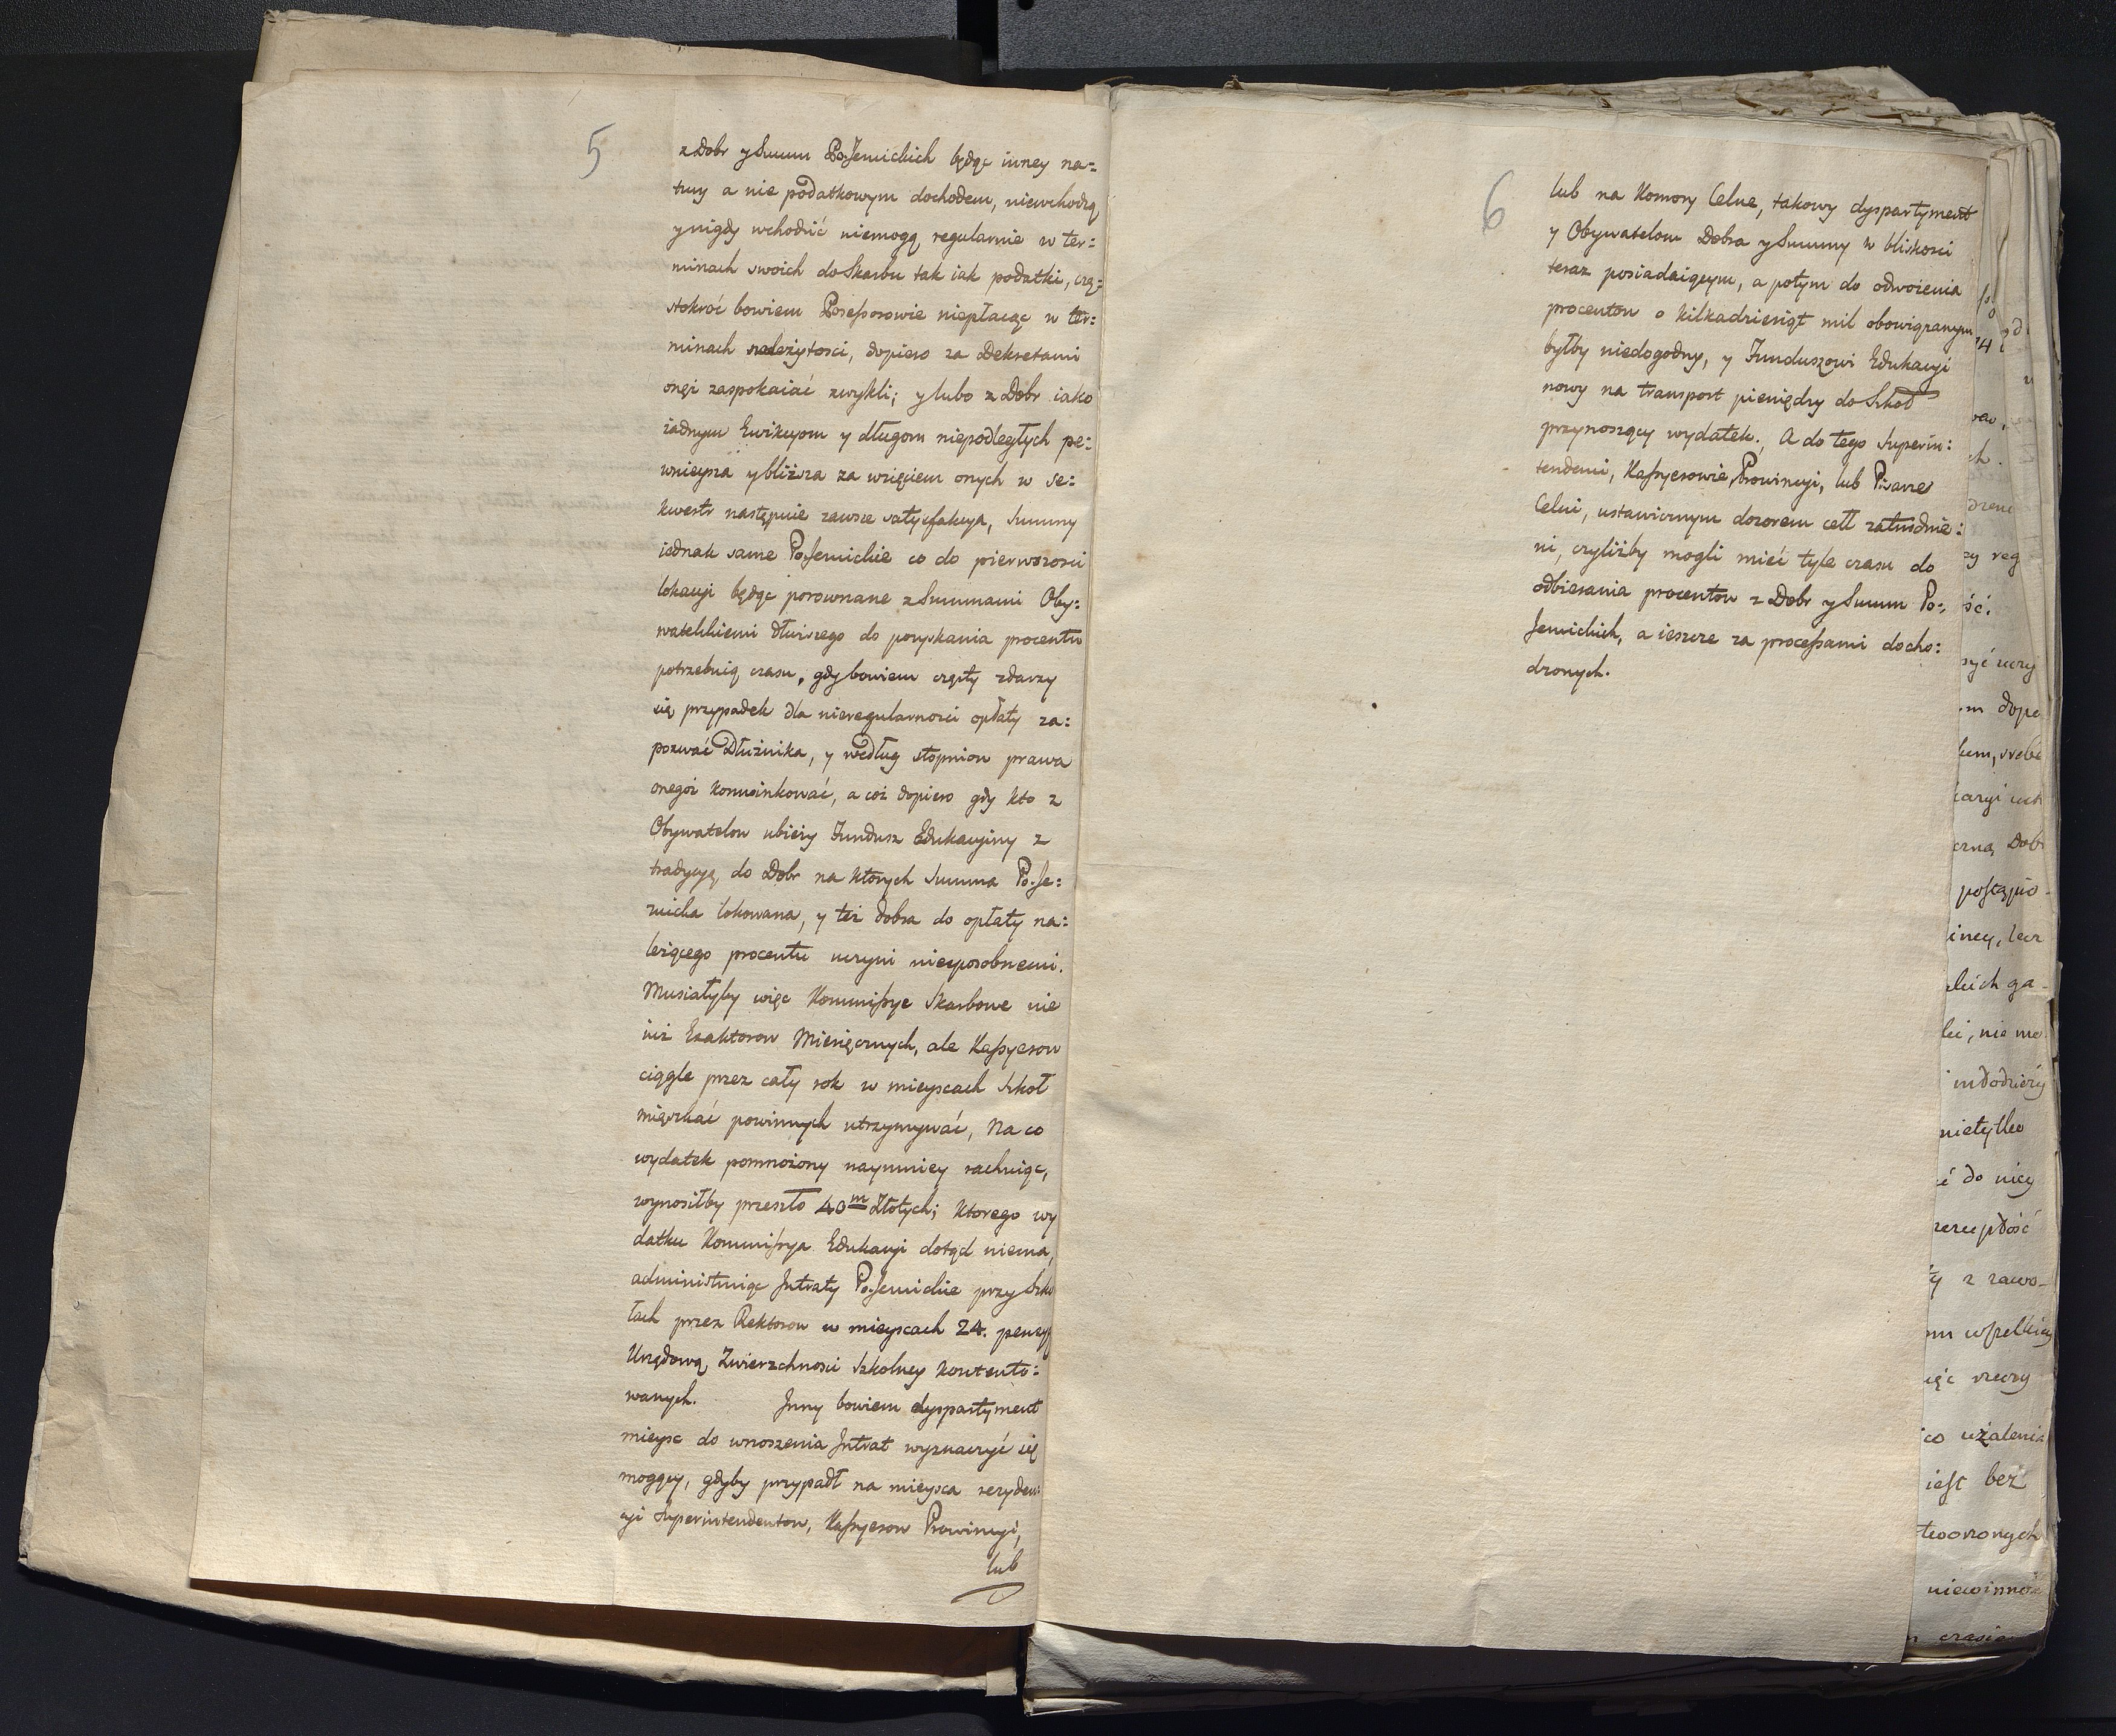 5
z Dobr y Summ PoJezuickich będąc inney na=
tury a nie podatkowym dochodem, niewchodzą
y nigdy wchodzić niemogą regularnie w ter=
minach swoich do Skarbu tak iak podatki, czę=
stokroć bowiem Possessorowie niepłacąc w ter=
minach należytosci, dopiero za Dekretami
onęż zaspokaiać zwykli; y lubo z Dobr iako
żadnym Ewikcyom y długom niepodległych pe=
wnieysza y bliższa za wzięciem onych w se=
kwestr następuie zawsze satysfakcya, Summy
iednak same PoJezuickie co do pierwszosci
lokacyi będąc porownane z Summami Oby=
watelskiemi dłuższego do pozyskania procentu
potrzebuią czasu, gdy bowiem częsty zdarzy
się przypadek dla nieregularnosci opłaty za=
pozwać Dłużnika, y według stopniow prawa
onegoż konwinkować, a coż dopiero gdy kto z
Obywatelow ubieży Fundusz Edukacyiny z
tradycyą do Dobr na ktorych Summa PoJe=
zuicka lokowana, y też dobra do opłaty na=
leżącego procentu uczyni niesposobnemi.
Musiałyby więc Kommissye Skarbowe nie
iuż Exaktorow Miesięcznych, ale Kassyerow
ciągle przez cały rok w mieyscach Szkoł
mięszkać powinnych utrzymywać, Na co
wydatek pomnożony naymniey rachuiąc,
wynosiłby przeszło 40m Złotych; ktorego wy
datku Kommissya Edukacyi dotąd niema,
administruiąc Intraty PoJezuickie przy Szko
łach przez Rektorow w mieyscach 24. pensyą
Urzędową Zwierzchnosci Szkolney kontento=
wanych. Inny bowiem dyspartyment
mieysc do wnoszenia Intrat wyznaczyć się
mogący, gdyby przypadł na mieysca rezyden=
cyi Superintendentow, Kassyerow Prowincyi,
lub
6
lub na Komory Celne, takowy dyspartyment
y Obywatelom Dobra y Summy w bliskosci
teraz posiadaiącym, a potym do odwożenia
procentow o kilkadziesiąt mil obowiązanym
byłby niedogodny, y Funduszowi Edukacyi
nowy na transport pieniędzy do Szkoł
przynoszący wydatek. A do tego Superin=
tendenci, Kassyerowie Prowincyi, lub Pisarze
Celni, ustawicznym dozorem cell zatrudnie=
ni, czyliżby mogli mieć tyle czasu do
odbierania procentow z Dobr y Summ Po=
Jezuickich, a ieszcze za processami docho=
dzonych.